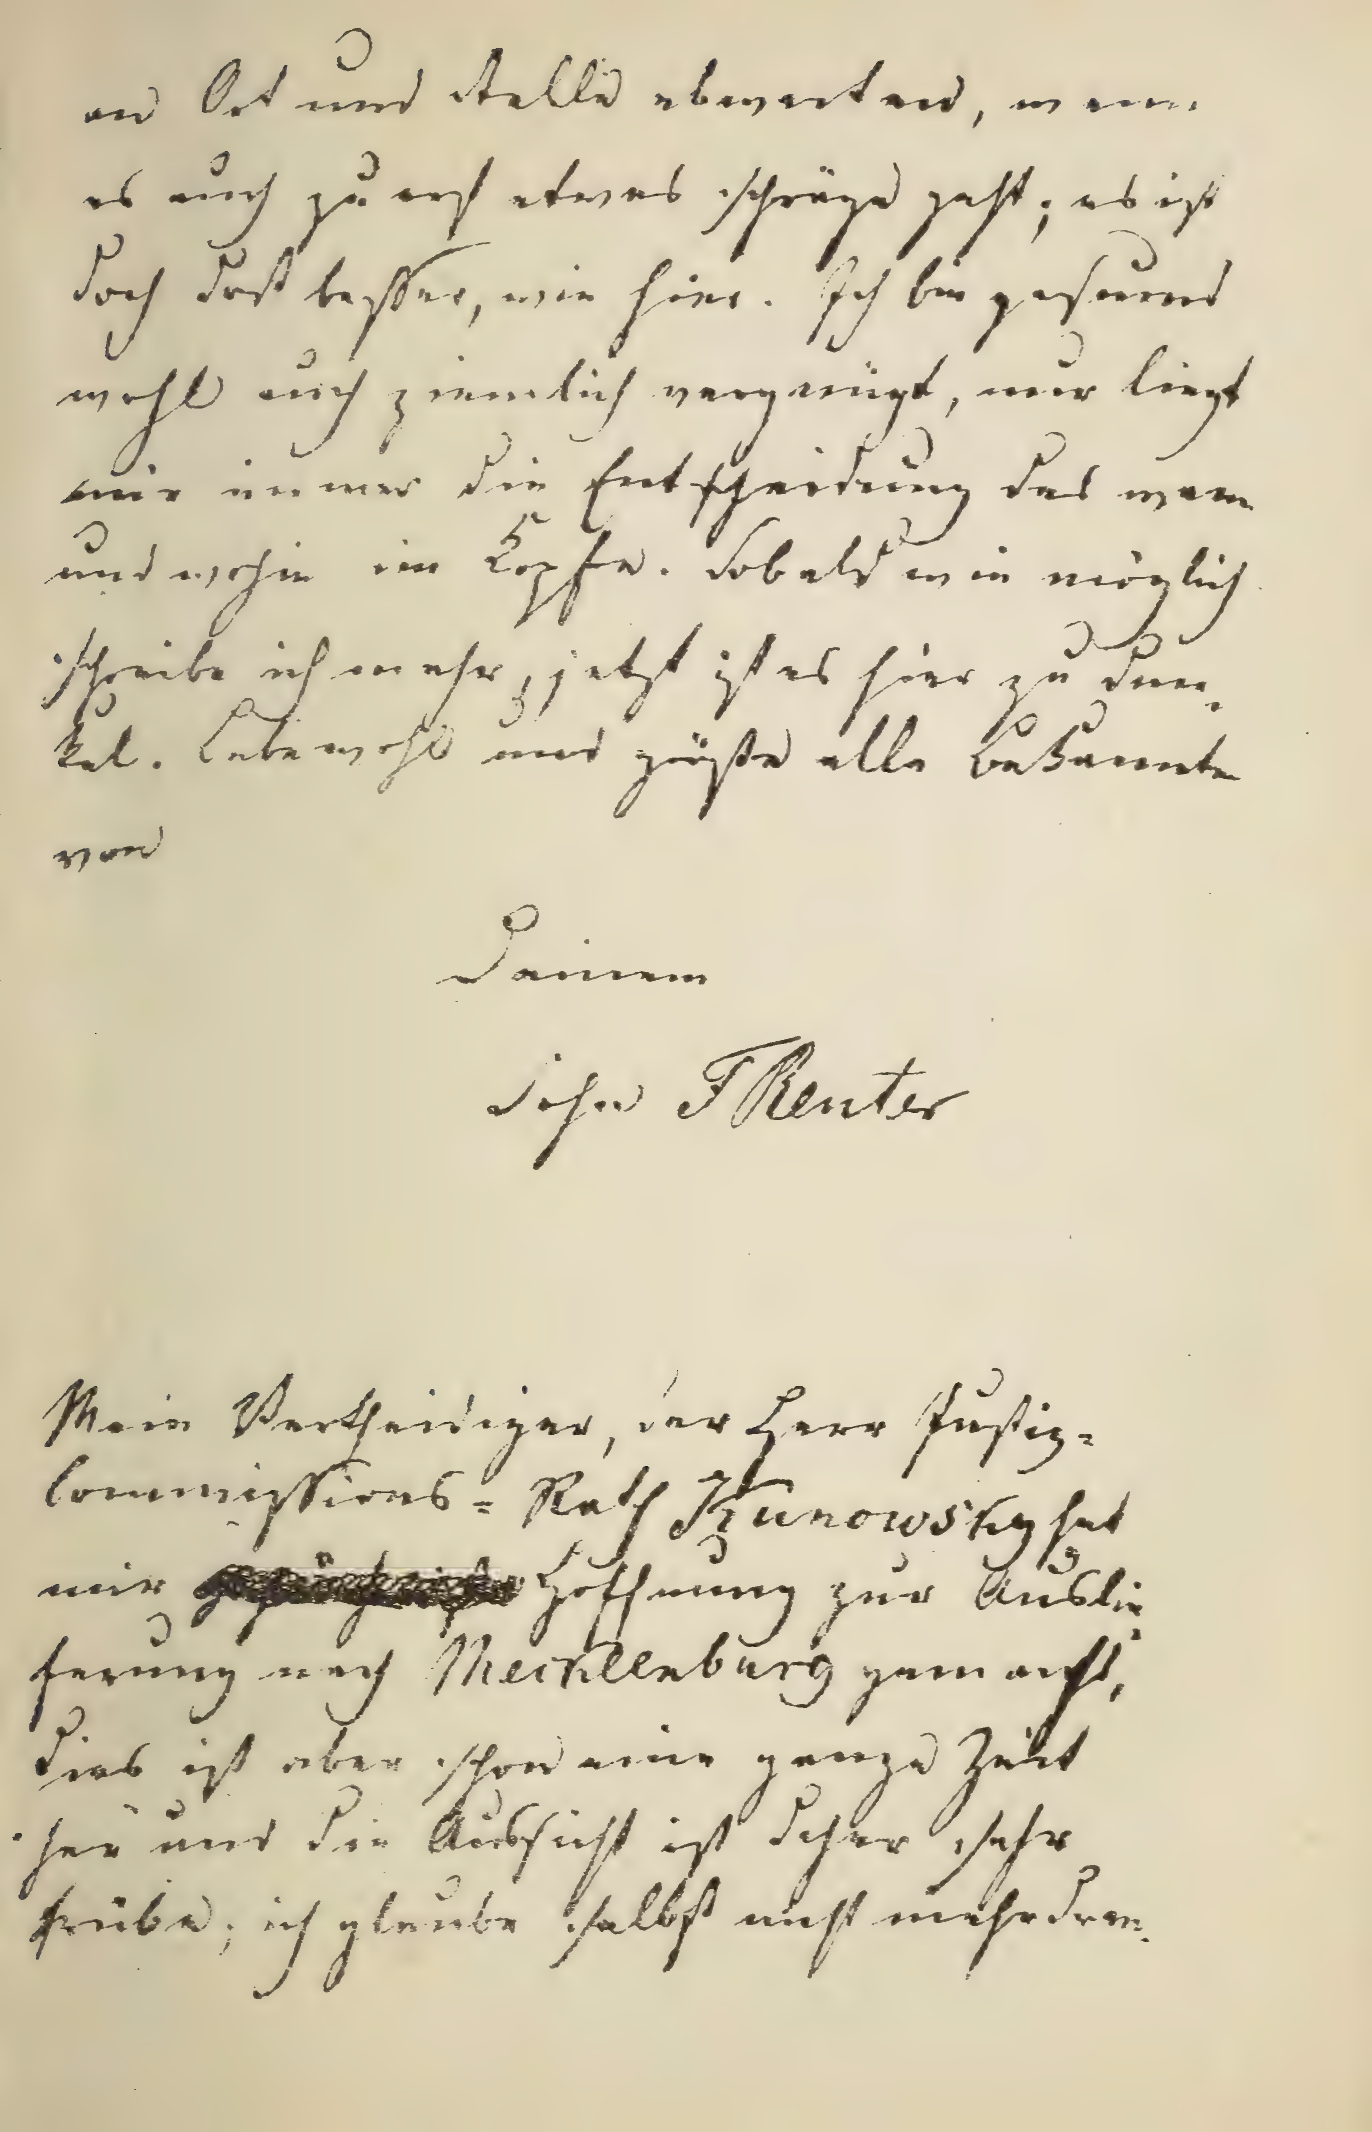 an Ort und Stelle abwarten, wenn
es auch zu erst etwas schräge geht; es ist
doch dort besser, wie hier. Ich bin gesund
wohl auch ziemlich vergnügt, nur liegt
mir immer die Entscheidung des wann
und wohin im Kopfe. Sobald wie möglich
schreibe ich mehr, jetzt ist es hier zu dun-
kel. Lebewohl und grüße alle Bekannte
von
Deinem
Sohn F Reuter
Mein Vertheidiger, der Herr Justiz-
Commissions-Rath Kunowsky hat
mir Hoffnung zur Auslie-
ferung nach Mecklenburg gemacht,
dies ist aber schon eine ganze Zeit
her und die Aussicht ist daher sehr
trübe; ich glaube selbst nicht mehr dran.